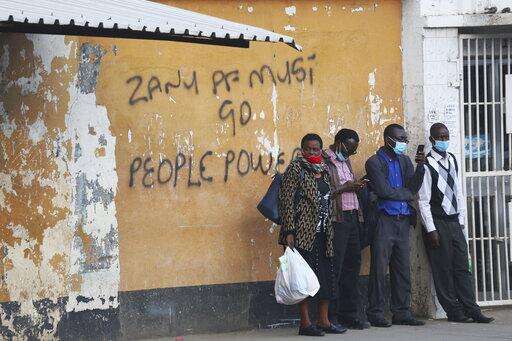 ZANU PF MUSt
GO
PEOPLE POWE